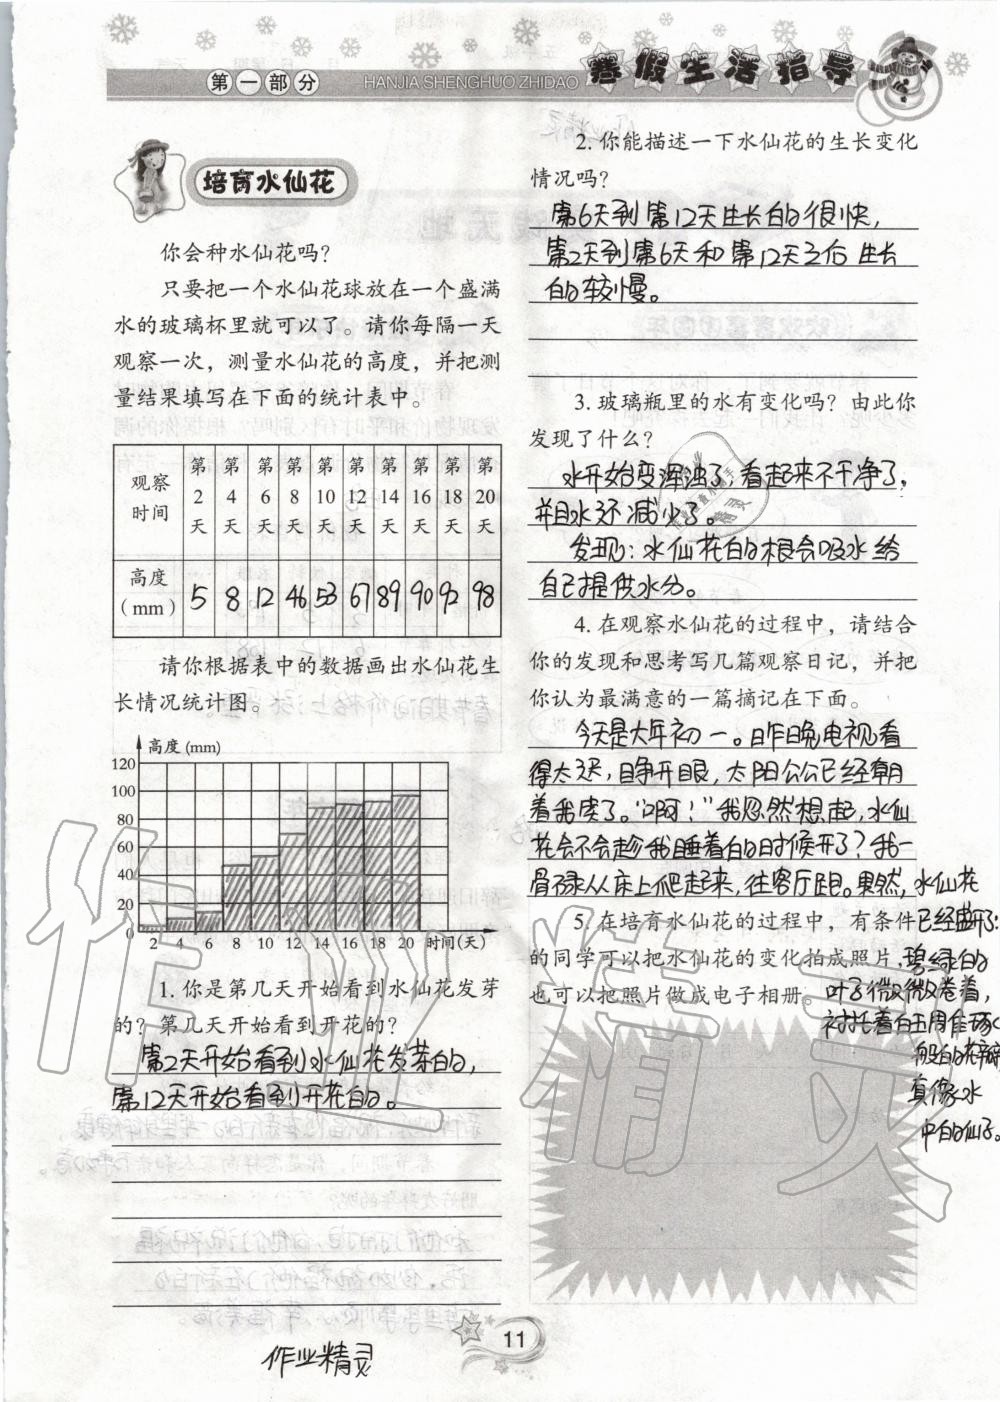 寒假生活指导
第一部分
HANJIA SHENGHUO ZHIDAO
培育水仙花
你会种水仙花吗?
只要把一个水仙花球放在一个盛满
水的玻璃杯里就可以了。请你每隔一天
观察一次，测量水仙花的高度，并把测
量结果填写在下面的统计表中。
观察时间 第2天 第4天 第6天 第8天 第10天 第12天 第14天 第16天 第18天 第20天
高度(mm) 5 8 12 46 53 67 89 90 92 98
请你根据表中的数据画出水仙花生
长情况统计图。
高度(mm)
120
100
80
60
40
20
0
2 4 6 8 10 12 14 16 18 20 时间(天)
1. 你是第几天开始看到水仙花发芽
的？第几天开始看到开花的？
第2天开始看到水仙花发芽的，
第12天开始看到开花的。
2. 你能描述一下水仙花的生长变化
情况吗？
第6天到第12天生长的很快，
第2天到第6天和第12天之后生长
的较慢。
3. 玻璃瓶里的水有变化吗？由此你
发现了什么？
水开始变浑浊了，看起来不干净了，
并且水还减少了。
发现：水仙花的根会吸水给
自己提供水分。
4. 在观察水仙花的过程中，请结合
你的发现和思考写几篇观察日记，并把
你认为最满意的一篇摘记在下面。
今天是大年初一。昨晚电视看
得太迟，睁开眼，太阳公公已经朝
着我笑了。“啊！”我忽然想起，水仙
花会不会趁我睡着的时候开了？我一
骨碌从床上爬起来，往客厅跑。果然，水仙花
已经盛开了：
碧绿的
叶子微微卷着，
衬托着白玉周佳琢
般的花瓣
真像水
中的仙子。
5. 在培育水仙花的过程中，有条件
的同学可以把水仙花的变化拍成照片，
也可以把照片做成电子相册。
作业精灵
11
作业精灵